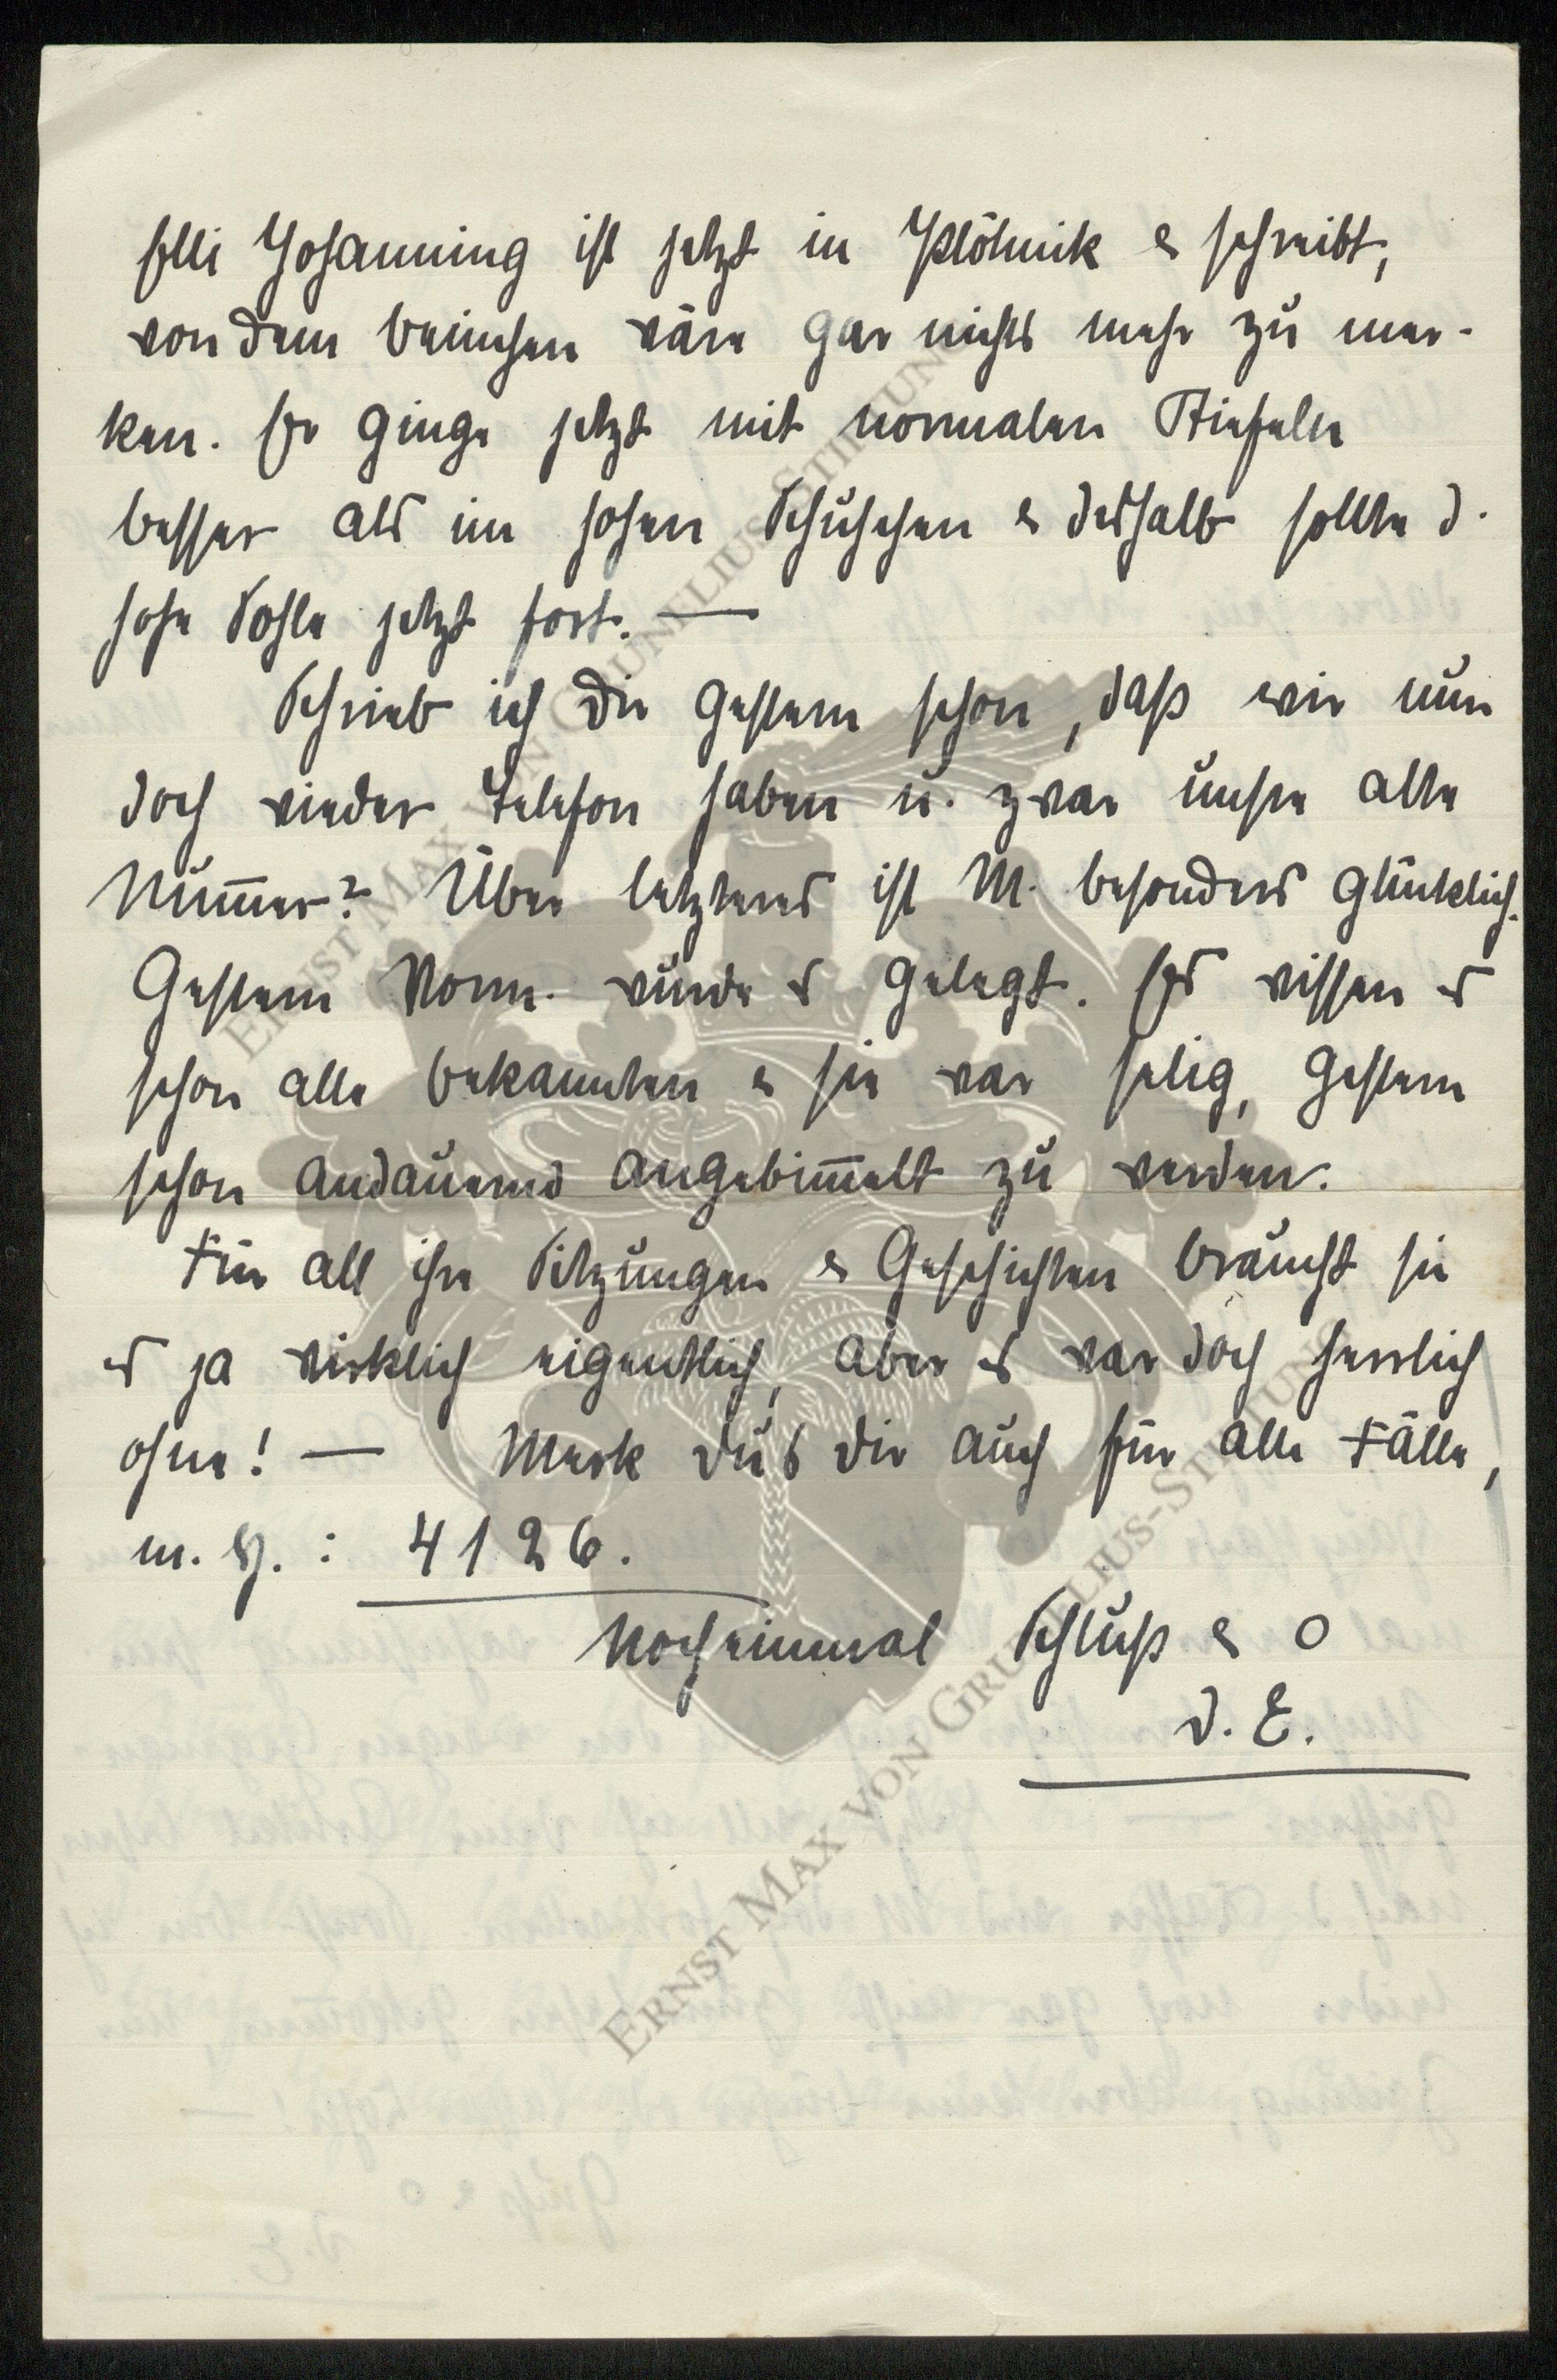 Elli Johanning ist jetzt in Kölnik & schreibt,
von dem Beinchen wäre gar nichts mehr zu mer-
ken. Er ginge jetzt mit normalen Stiefeln
besser als im hohen Schuhchen & deshalb sollte d.
hohe Sohle jetzt fort. —
Schrieb ich Dir gestern schon, daß wir nun
doch wieder Telefon haben u. zwar unsre alte
Num̅er? Über letzteres ist M. besonders glücklich.
Gestern Vorm. wurde es gelegt. Es wissen es
schon alle Bekannten & sie war selig, gestern
schon andauernd angebim̅elt zu werden.
Für all ihre Sitzungen & Geschichten braucht sie
es ja wirklich eigentlich, aber es war doch herrlich
ohne! — Merk Du's Dir auch für alle Fälle,
m. H. : 4126.
Nocheinmal Schluß & O
D. E.
ERNST MAX VON GRUNELIUS-STIFTUNG
ERNST MAX VON GRUNELIUS-STIFTUNG